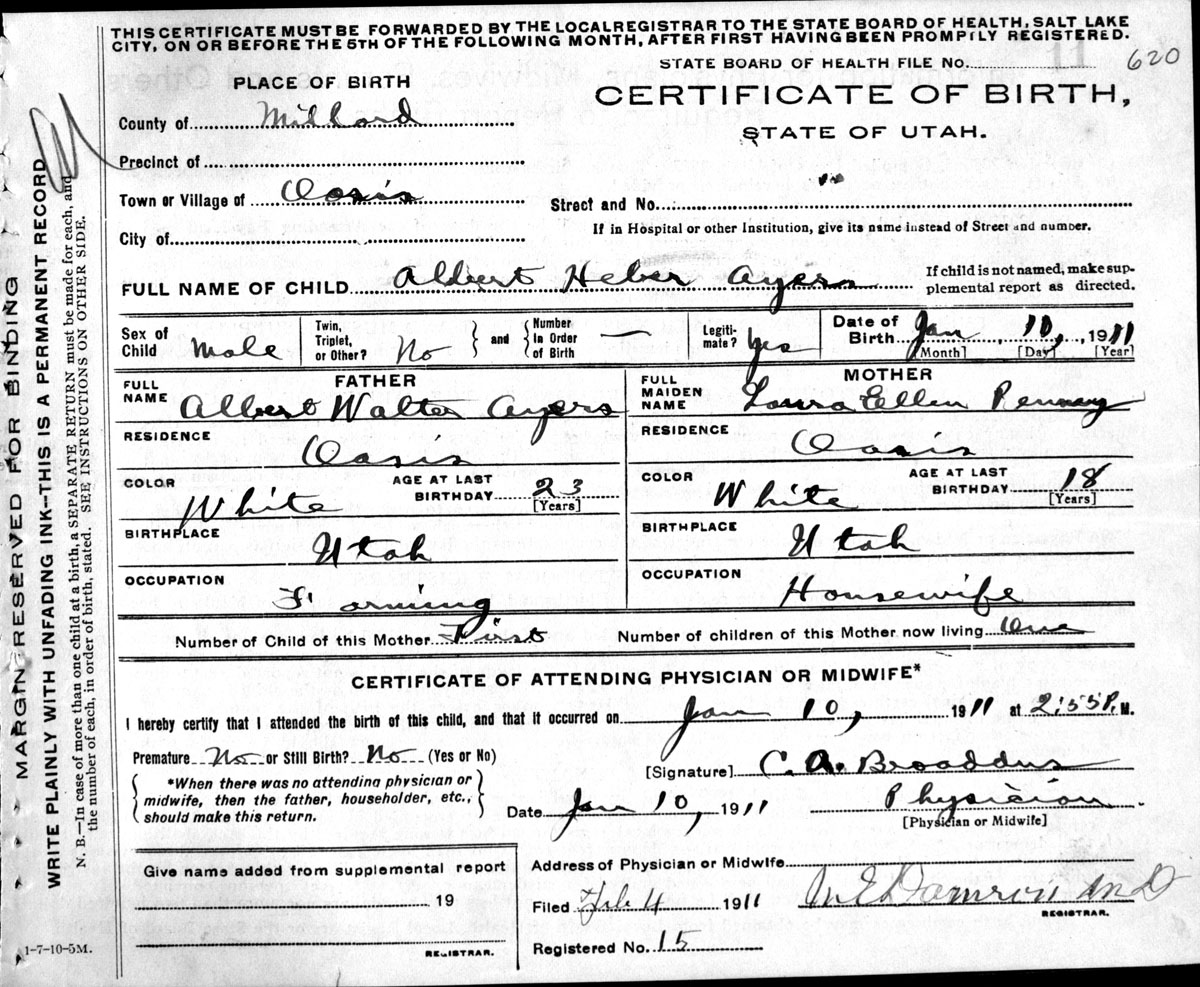 THIS CERTIFICATE MUST BE FORWARDED BY THE LOCAL REGISTRAR TO THE STATE BOARD OF HEALTH, SALT LAKE
CITY, ON OR BEFORE THE 5TH OF THE FOLLOWING MONTH, AFTER FIRST HAVING BEEN PROMPTLY REGISTERED.
STATE BOARD OF HEALTH FILE No. 11 620
PLACE OF BIRTH
CERTIFICATE OF BIRTH,
STATE OF UTAH.
County of Millard
Precinct of
Town or Village of Oasis
Street and No.
City of
If in Hospital or other Institution, give its name instead of Street and number.
FULL NAME OF CHILD Albert Heber Ayers
If child is not named, make sup-
plemental report as directed.
Sex of Child Male
Twin, Triplet, or Other? No
and
Number In Order of Birth —
Legiti-
mate? Yes
Date of Birth Jan, 10, 1911
[Month] [Day] [Year]
FATHER
FULL NAME Albert Walter Ayers
RESIDENCE Oasis
COLOR White
AGE AT LAST BIRTHDAY 23
[Years]
BIRTHPLACE Utah
OCCUPATION Farming
MOTHER
FULL MAIDEN NAME Laura Ellen
RESIDENCE Oasis
COLOR White
AGE AT LAST BIRTHDAY 18
[Years]
BIRTHPLACE Utah
OCCUPATION Housewife
Number of Child of this Mother First Number of children of this Mother now living One
CERTIFICATE OF ATTENDING PHYSICIAN OR MIDWIFE*
I hereby certify that I attended the birth of this child, and that it occurred on Jan 10, 1911 at 2:55 P. M.
Premature No or Still Birth? No (Yes or No)
*When there was no attending physician or
midwife, then the father, householder, etc.,
should make this return.
[Signature] C. A. Broaddus
Date Jan 10, 1911
Physician
[Physician or Midwife]
Give name added from supplemental report
19
REGISTRAR.
Address of Physician or Midwife
Filed Feb 4 1911 M E Damron M D
REGISTRAR.
Registered No. 15
1-7-10-5M.
MARGIN RESERVED FOR BINDING
WRITE PLAINLY WITH UNFADING INK—THIS IS A PERMANENT RECORD
N. B.—In case of more than one child at a birth, a SEPARATE RETURN must be made for each, and
the number of each, in order of birth, stated. SEE INSTRUCTIONS ON OTHER SIDE.